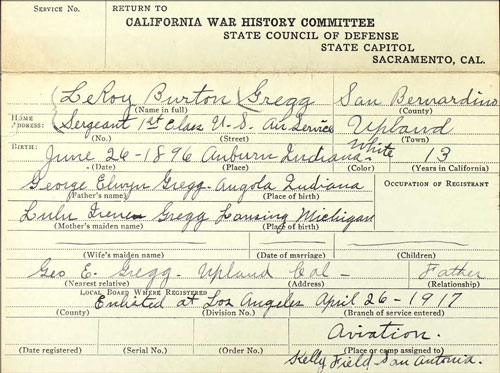 SERVICE NO.
RETURN TO
CALIFORNIA WAR HISTORY COMMITTEE
STATE COUNCIL OF DEFENSE
STATE CAPITOL
SACRAMENTO, CAL.
LeRoy Burton Gregg San Bernardino
(Name in full) (County)
HOME ADDRESS: Sergeant 1st Class U.S. Air Service Upland
(No.) (Street) (Town)
BIRTH: June 26-1896 Auburn Indiana. White 13
(Date) (Place) (Color) (Years in California)
George Elwyn Gregg. Angola Indiana
(Father's name) (Place of birth) OCCUPATION OF REGISTRANT
Lulu Irene Gregg Lansing Michigan
(Mother's maiden name) (Place of birth)
(Wife's maiden name) (Date of marriage) (Children)
Geo E. Gregg- Upland Cal- Father
(Nearest relative) (Address) (Relationship)
LOCAL BOARD WHERE REGISTERED
Enlisted at Los Angeles April 26-1917
(County) (Division No.) (Branch of service entered)
Aviation.
(Date registered) (Serial No.) (Order No.) (Place or camp assigned to)
Kelly Field, San Antonia.